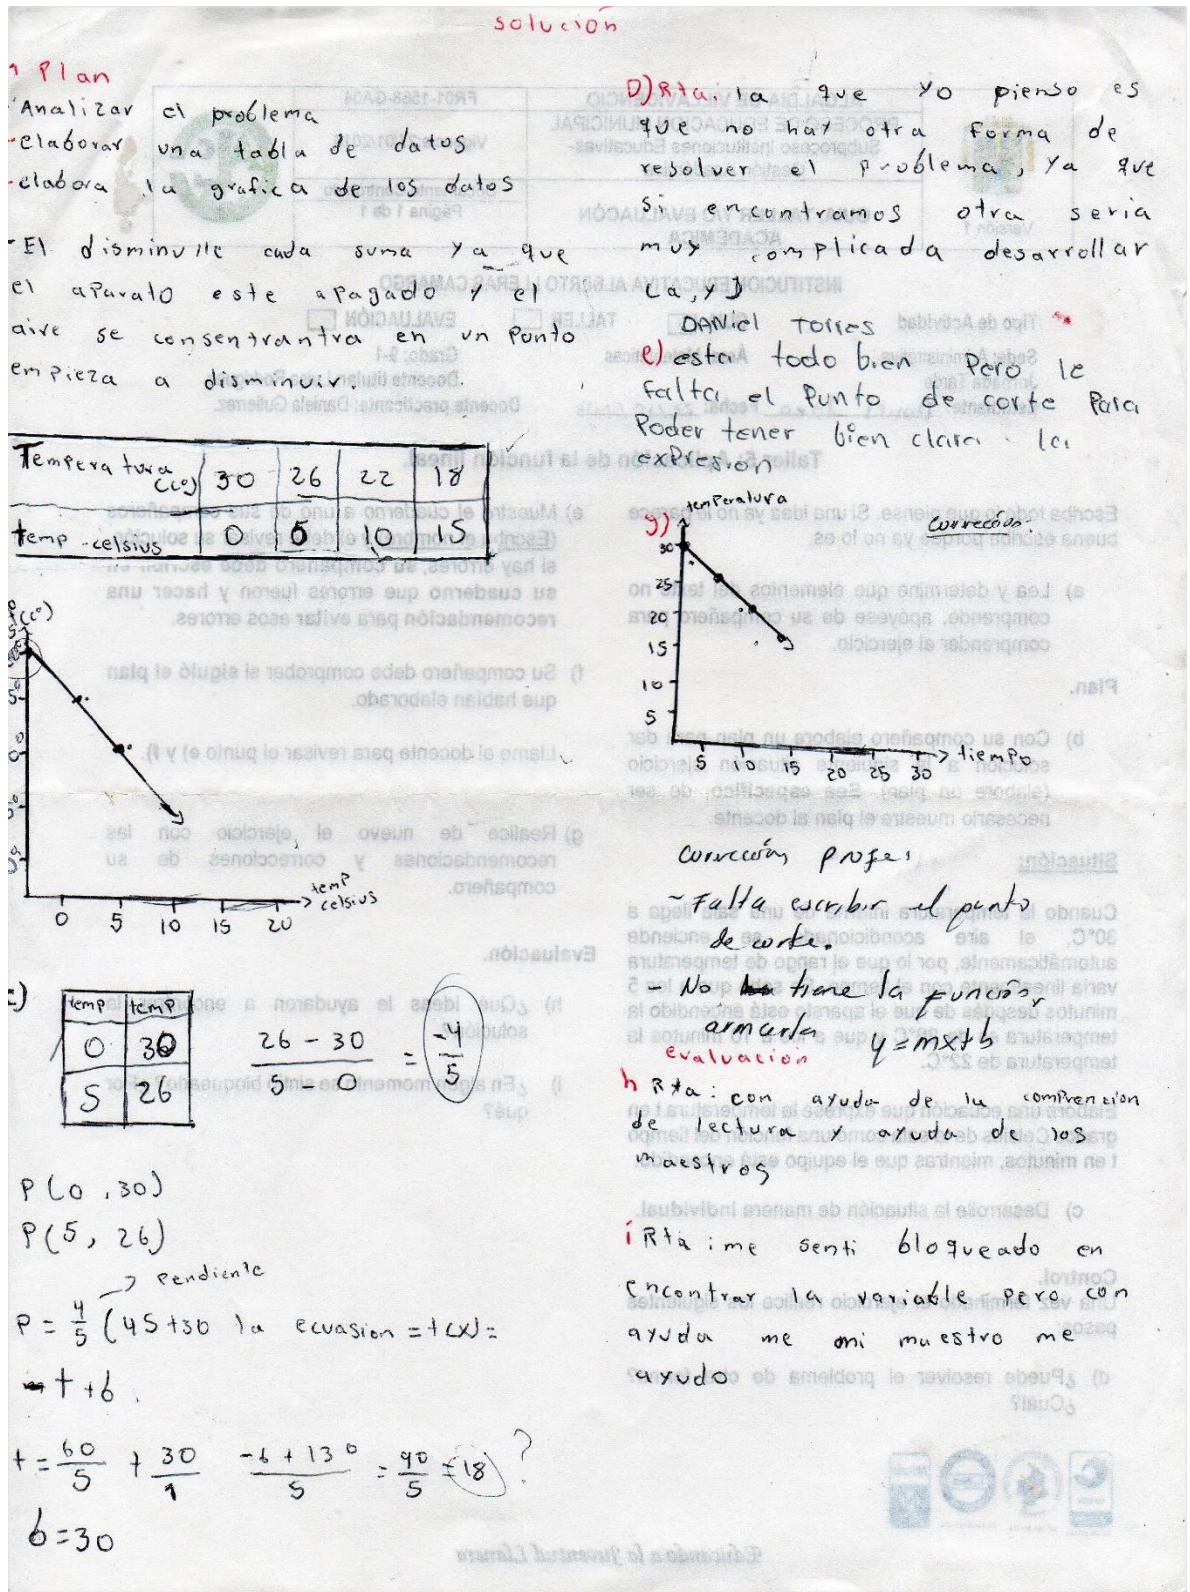 solución
Plan
-Analizar el problema
-elaborar una tabla de datos
-elabora la grafica de los datos
-El disminulle cada suma ya que
el aparato este apagado y el
aire se consentrantra en un punto
empieza a disminuir.
Temperatura (C°) 30 26 22 18
temp-celsius 0 5 10 15
0 5 10 15 20
temp
celsius
temp temp
0 30
5 26
26 - 30
5 - 0
= -4
5
P(0,30)
P(5, 26)
→ Pendiente
P = 4/5 (45+30 la ecuasion = t(x)=
t + b.
t = 60/5 + 30/1 -6 + 130/5 = 90/5 = 18 ?
b=30
D) Rta. la que yo pienso es
que no hay otra forma de
resolver el problema, ya que
si encontramos otra seria
muy complicada desarrollar
DANiel Torres
e) esta todo bien Pero le
falta el Punto de corte Para
Poder tener bien clara la
expresion
g) temperatura
Corrección.
30
25
20
15
10
5
5 10 15 20 25 30 → tiempo
Corrección profe:
- Falta escribir el punto
de corte.
- No tiene la función,
armarla y=mx+b
evaluacion
h Rta: con ayuda de la comprencion
de lectura y ayuda de los
maestros
i Rta: me senti bloqueado en
encontrar la variable pero con
ayuda me mi maestro me
ayudo